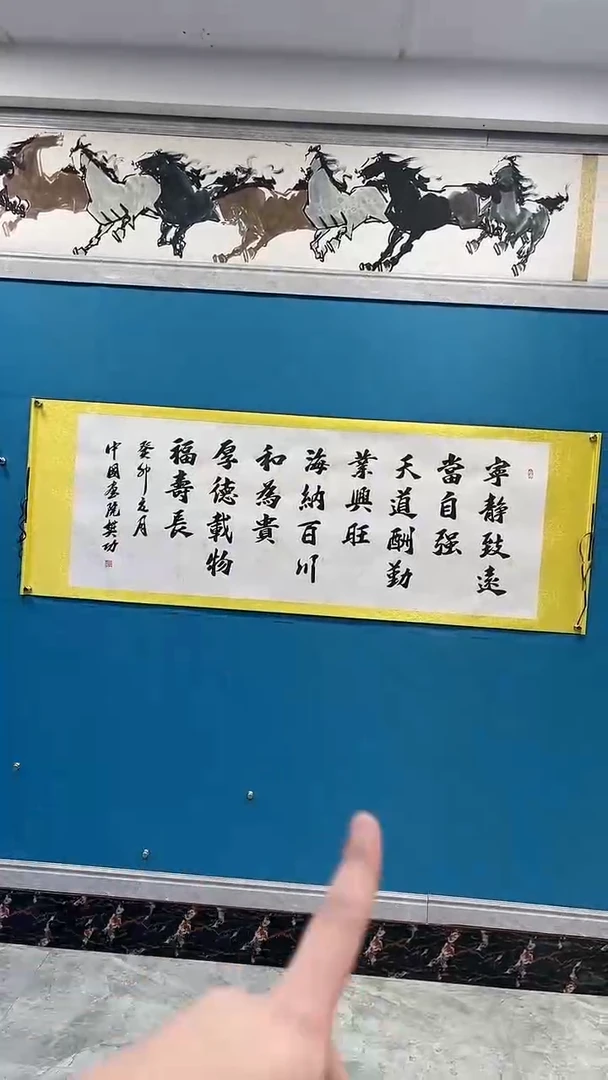 寧静致遠
當自强
天道酬勤
業興旺
海納百川
和為貴
厚德載物
福壽長
癸卯立月
中國畫院樊功